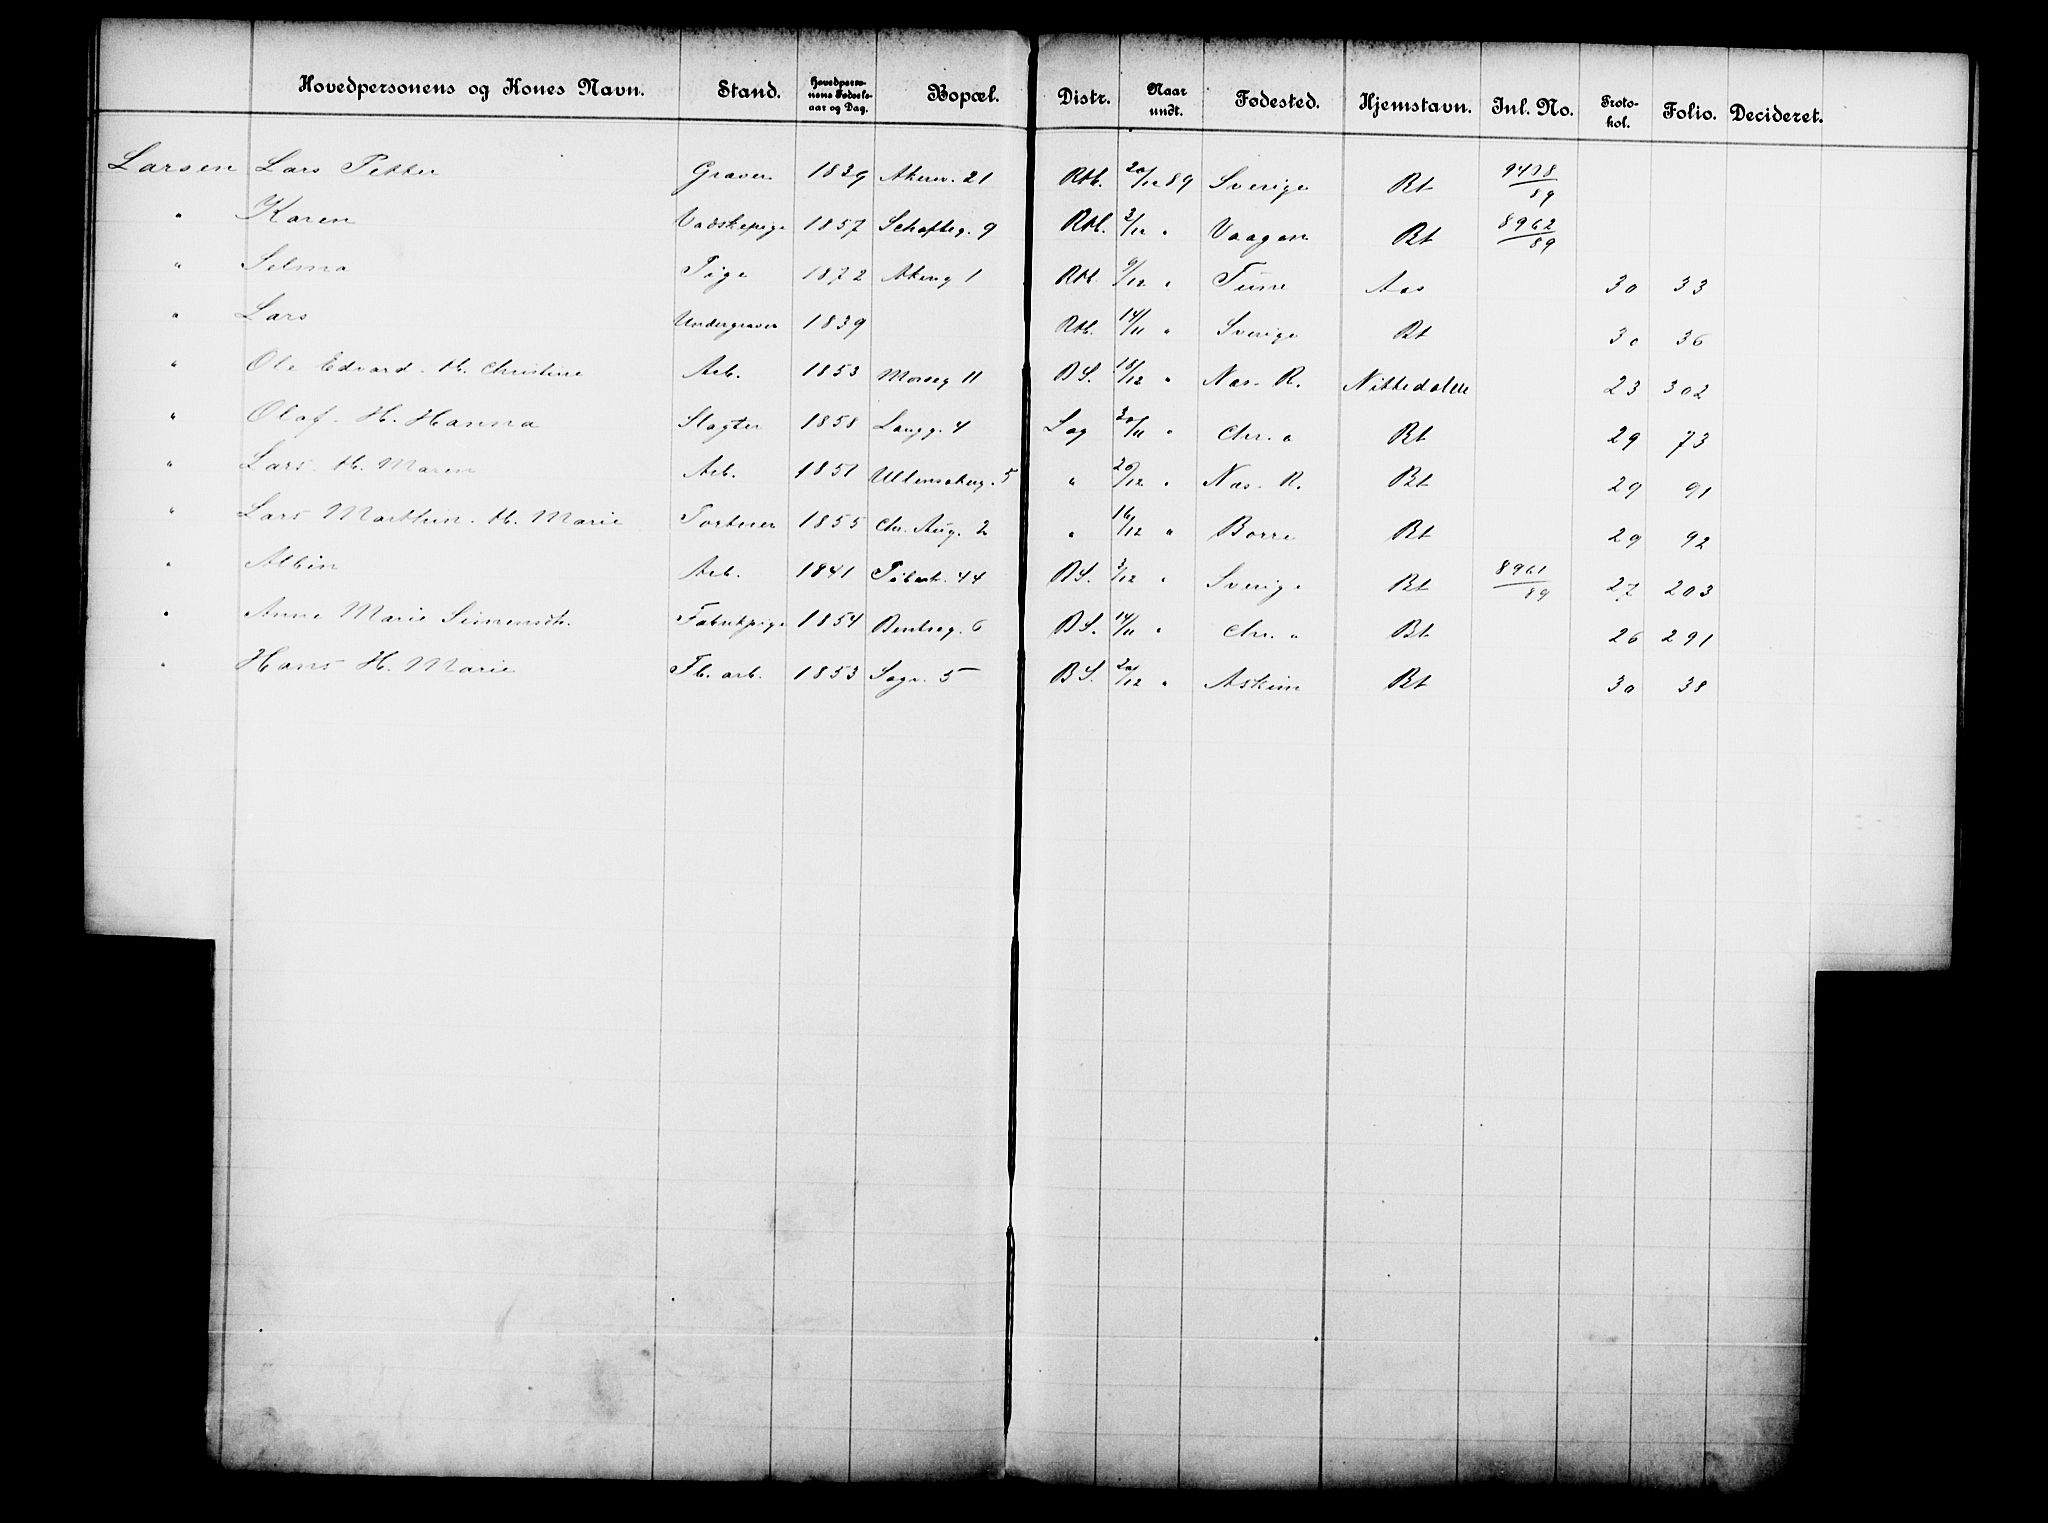 Hovedpersonens og Kones Navn. Stand. Hovedperso-nens Fødsels-aar og Dag. Bopæl. Distr. Naar undt. Fødested. Hjemstavn. Inl. No. Proto-kol. Folio. Decideret.
Larsen Lars Petter Graver 1839 Akersv. 21 Rtb. 20/12 89 Sverige Bt 9478/89
" Karen Vadskepige 1857 Schafteg. 9 Rtb. 3/12 " Vaagen Bt 8962/89
" Selma Pige 1872 Akersg 1 Rtb. 9/12 " Tune Aas 30 33
" Lars Undergraver 1839 Rtb. 14/11 " Sverige Bt 30 36
" Ole Edvard. H. Christine Arb. 1853 Mosseg 11 BS. 18/12 " Næs. R. Nittedalen 23 302
" Olaf. H. Hanna Slagter 1858 Langg. 4 Sag 30/11 " Chr. a Bt 29 73
" Lars. H. Maren Arb. 1851 Ullensakerg. 5 " 20/12 " Næs. R. Bt 29 91
" Lars Marthin. H. Marie 1855 Chr. Aug. 2 " 16/12 " Borre Bt 29 92
" Albin Arb. 1841 Pilestr. 44 BS. 3/12 " Sverige Bt 8961/89 27 203
" Anne Marie Simensdt. Fabrikpige 1854 Bentseg. 6 BS. 14/11 " Chr. a Bt 26 291
" Hans H. Marie Fb. arb. 1853 Sagv. 5 BS. 20/12 " Askim Bt 30 38